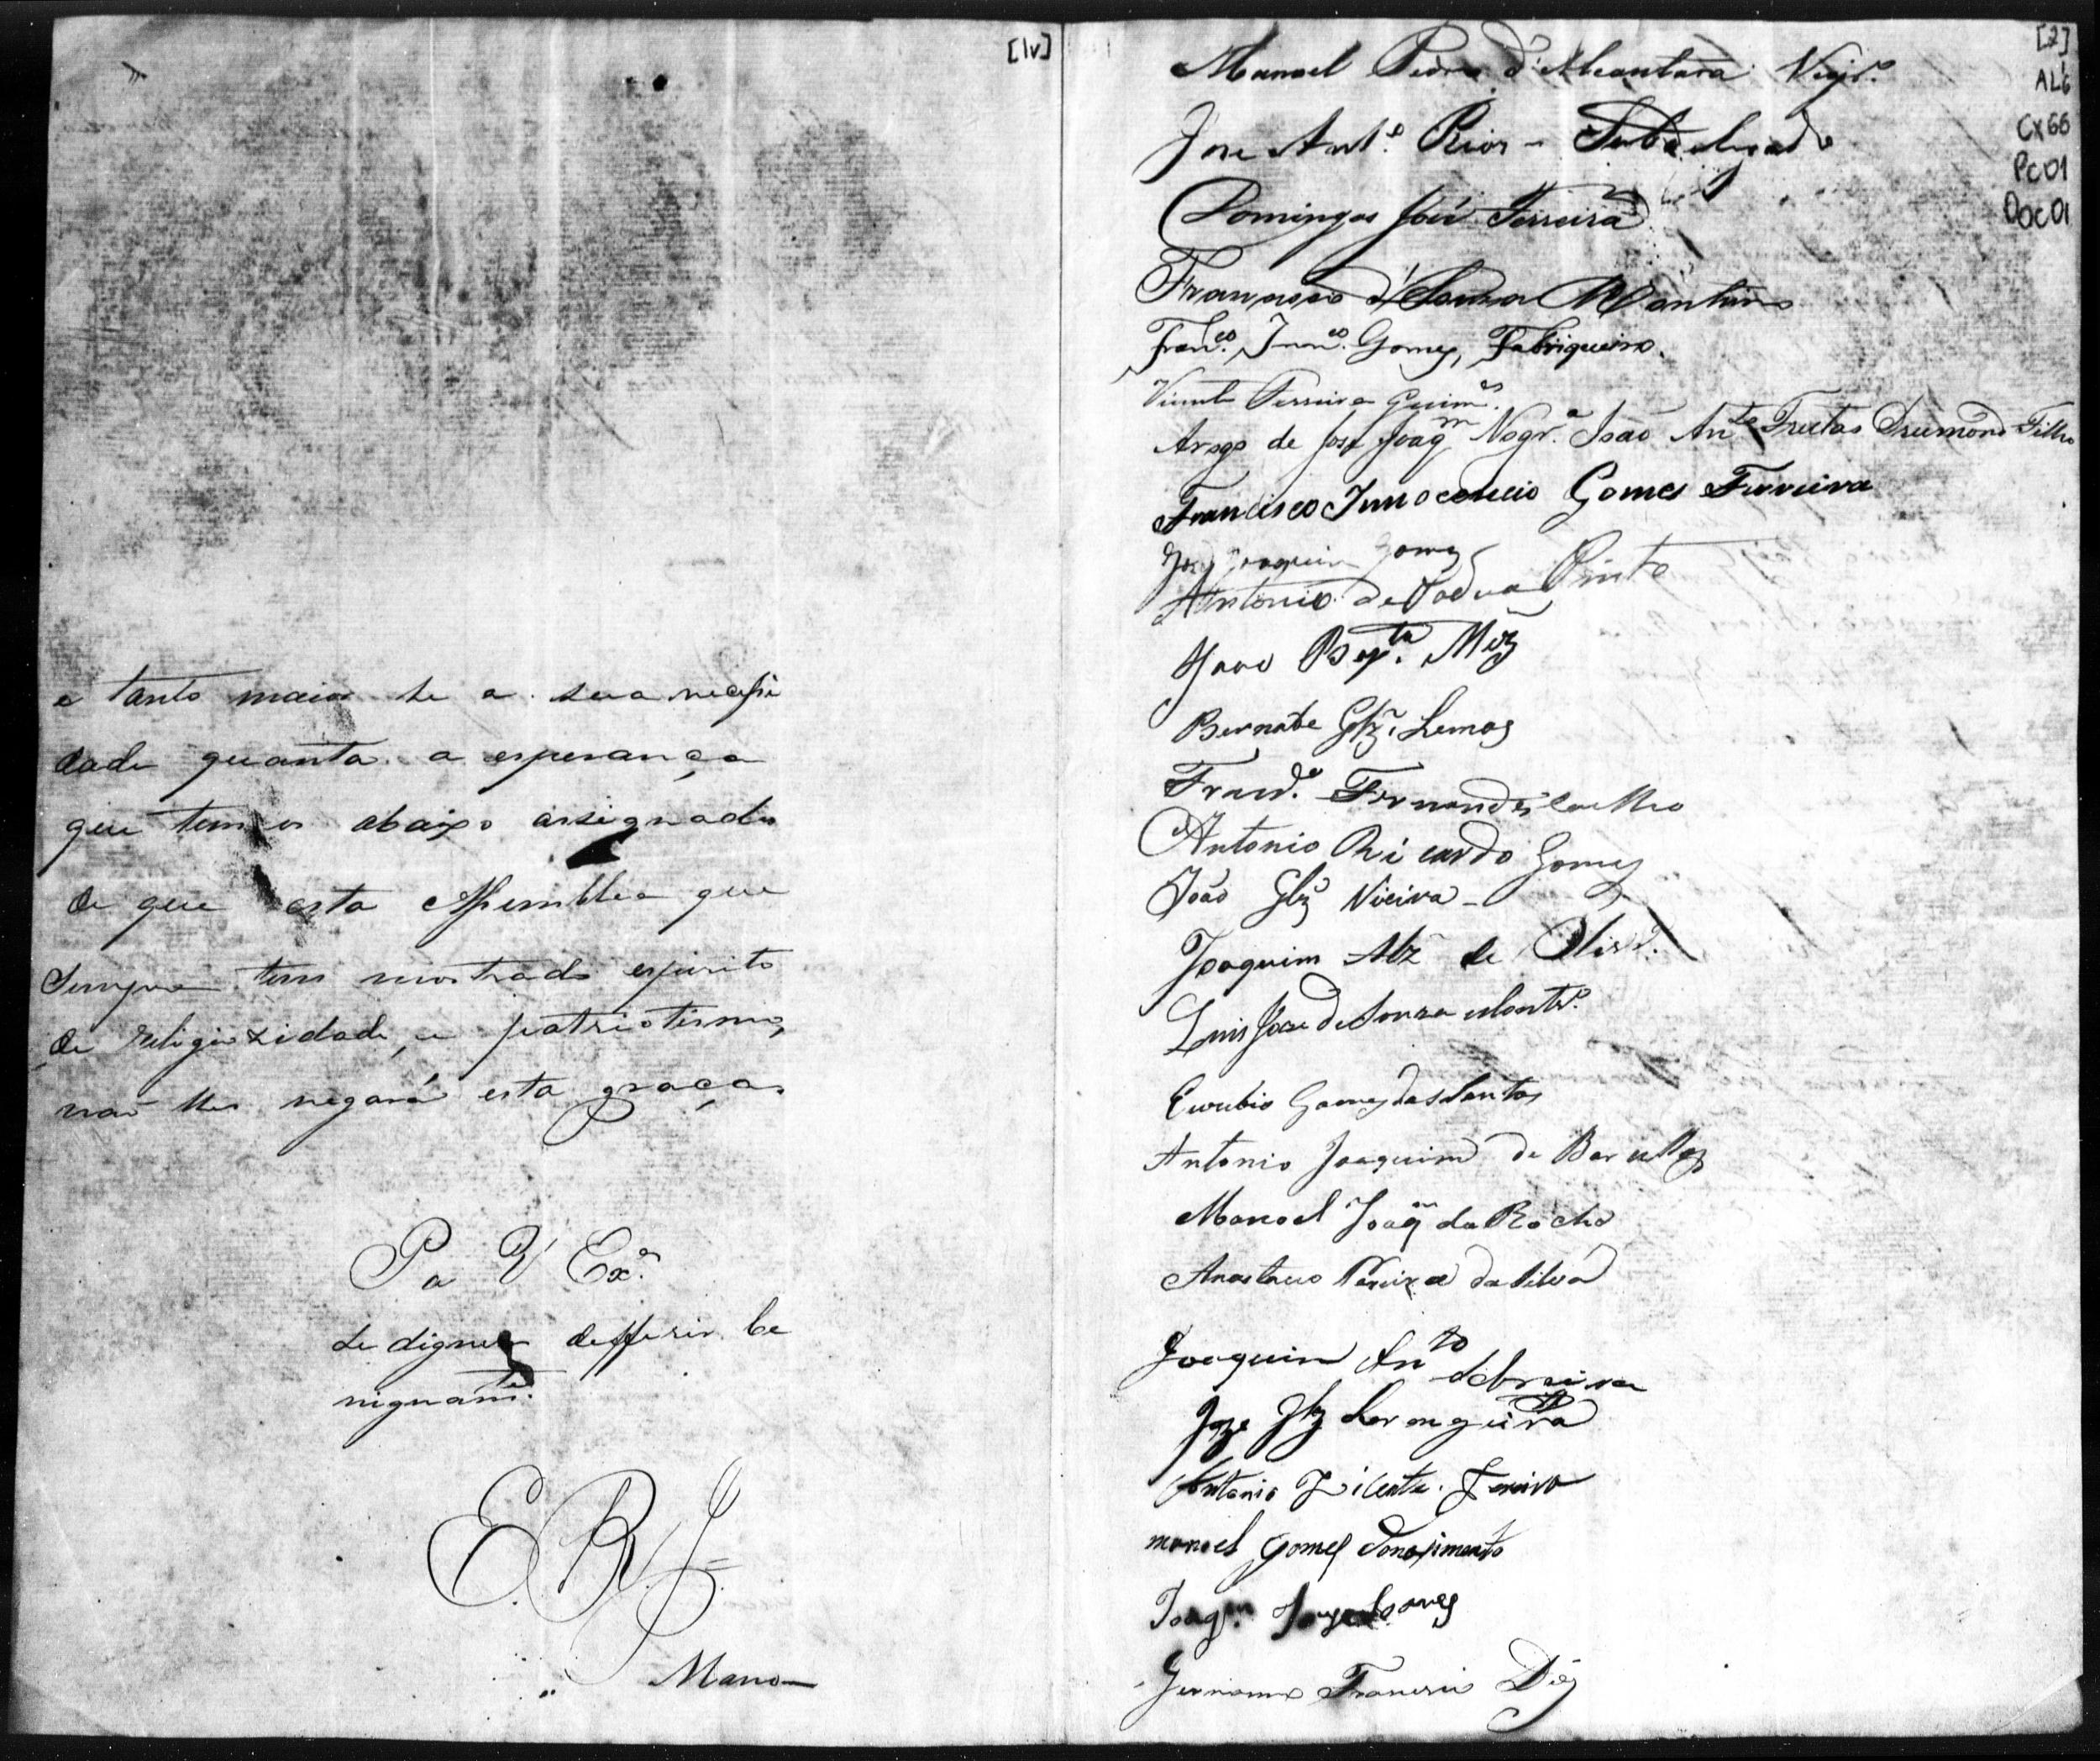 [1v]
e tanto maior he a sua necessi
dade quanta a esperança
que tem os abaixo assignados
de que esta Assemblea que
sempre tem mostrado espirito
de religiozidade, e patriotismo,
não lhes negará esta graça.
P a V Ex.ª
se digne defferir be
nignam.te
E. R. J.
Mano
[2]
AL6
CX66
PC01
DOC01
Manoel Pedro d'Alcantara Vigr.º
Jose Ant.º Rios - Subdelegado
Domingos José Ferreira
Francisco d'Souza
Fran.co Inno.co Gomes, Fabriqueiro.
Vicente Ferreira Guim.es
Arogo de Jose Joaq.m Nogr.ª João An.to Freitas Drumond Filho
Francisco Innocencio Gomes Ferreira
Jose Joaquim Gomes
Antonio de Padua Pinto
João Bap.ta Miz
Bernabe Glz. Lemos
Fernandes Coelho
Antonio Ricardo Gomes
João Glz Vieira
Joaquim Alz de Olivr.ª
Luis Jose de Souza Montr.º
Euzubio Gomes dos Santos
Antonio Joaquim de Barcellos
Manoel Joaq.m da Rocha
Anastacio Pereira da Silva
Joaquim An.to
Joze Glz Larangeira
Antonio Vicente Ferreira
manoel gomes donasimento
Joaq.m Soares
Francisco Diz